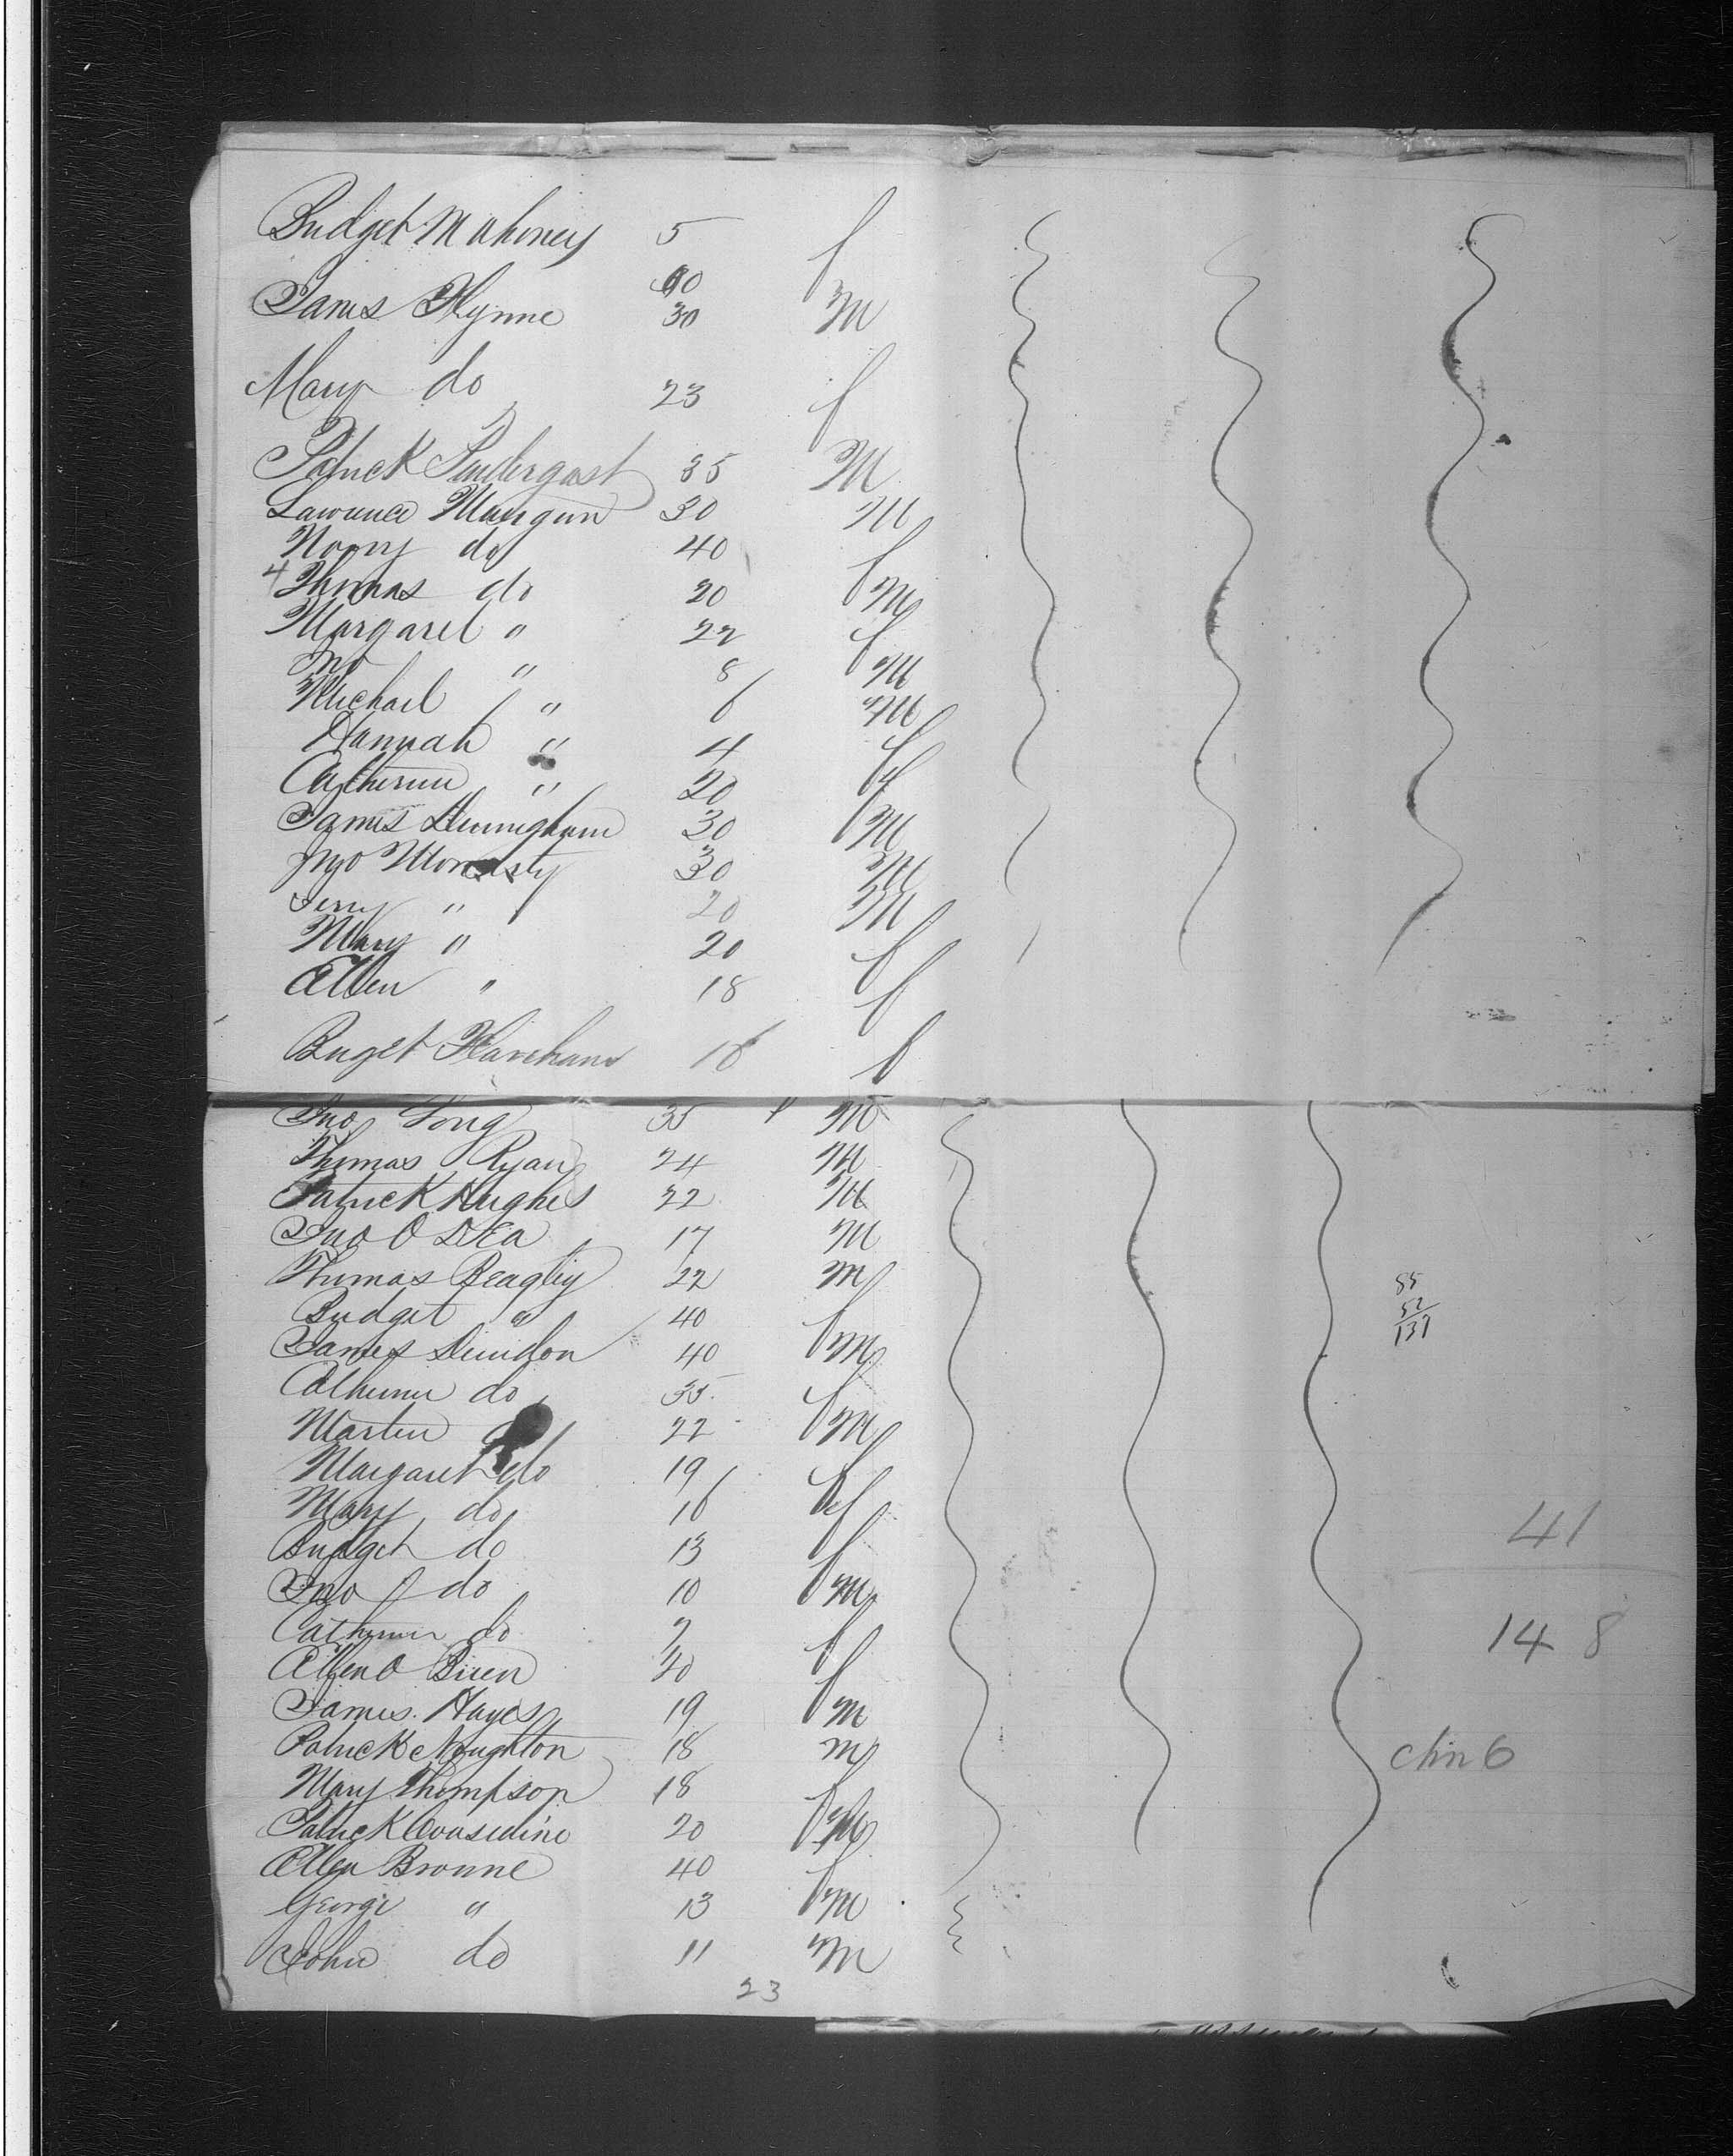 Bridget Mahoney 5 f
60
James Flynne 30 M
Mary do 23 f
Patrick Pendergast 35 M
Lawrence Mangun 30 M
Norry do 40 f
4 Thomas do 20 M
Margaret " 22 f
Jno " 8 M
Michael " 6 M
Hannah " 4 f
Catherine " 20 f
James 30 M
Jno 30 M
Jerry " 20 M
Mary " 20 f
Ellen " 18 f
Briget 16 f
Jno Long 35 " M
Thomas Ryan 24 M
Patrick Hughes 22 M
Jno O DEa 17 M
Thomas Beagley 22 M
Bridget " 40 f
James Dundon 40 M
Catherine do 35 f
Martin do 22 M
Margaret do 19 f
Mary do 16 f
Bridget do 13 f
Jno do 10 M
Catherine do 7 f
Ellen O Brien 20 f
James Hayes 19 M
Patrick Noughton 18 M
Mary Thompson 18 f
Patrick Consedine 20 M
Ellen Browne 40 f
George " 13 M
John do 11 M
23
85
52
137
41
148
chn 6